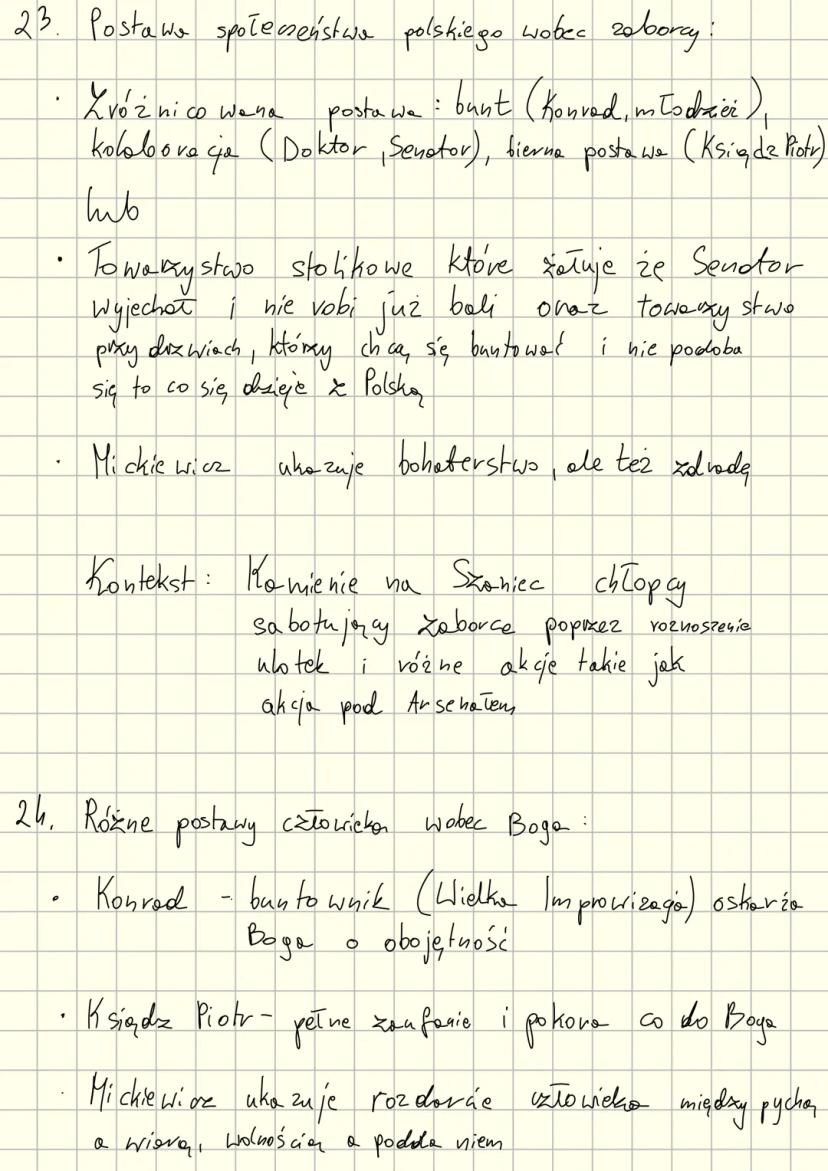 23. Postawa społeczeństwa polskiego wobec zaborcy:
• Zróżnicowana postawa: bunt (Konrad, młodzież),
kolaboracja (Doktor, Senator), bierna postawa (Ksiądz Piotr)
lub
• Towarzystwo stolikowe które żałuje że Senator
wyjechał i nie robi już bali oraz towarzystwo
przy drzwiach, którzy chcą się buntować i nie podoba
się to co się dzieje z Polską
• Mickiewicz ukazuje bohaterstwo, ale też zdradę
Kontekst: Kamienie na Szaniec chłopcy
sabotujący zaborcę poprzez roznoszenie
ulotek i różne akcje takie jak
akcja pod Arsenałem
24. Różne postawy człowieka wobec Boga:
• Konrad - buntownik (Wielka Improwizacja) oskarża
Boga o obojętność
• Ksiądz Piotr - pełne zaufanie i pokora co do Boga
• Mickiewicz ukazuje rozdarcie człowieka między pychą
a wiarą, wolnością a poddaniem